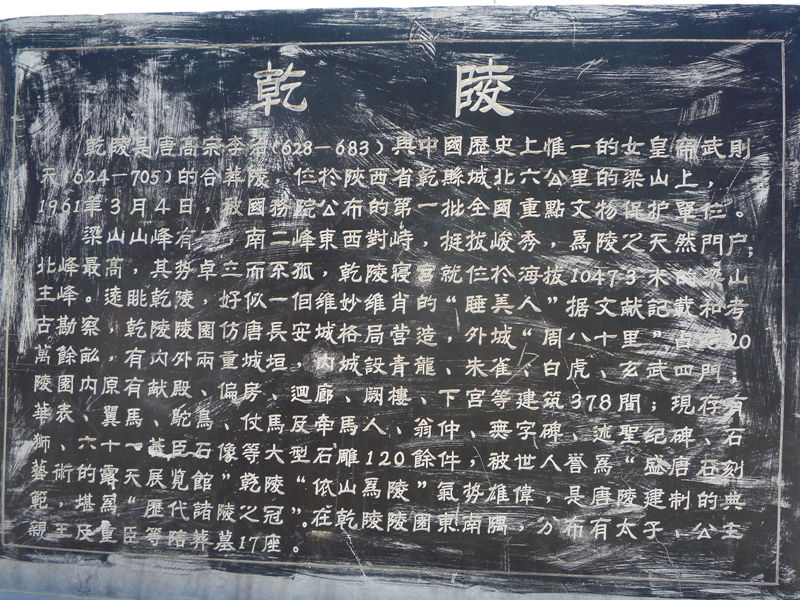 乾陵
乾陵是唐高宗李治(628—683)與中國歷史上惟一的女皇帝武則
天(624—705)的合葬陵，位於陝西省乾縣城北六公里的梁山上，
1961年3月4日，被國務院公布的第一批全國重點文物保护單位。
梁山山峰有三，南二峰東西對峙，挺拔峻秀，爲陵之天然門户；
北峰最高，其势卓立而不孤，乾陵寝宮就位於海拔1047.3米的梁山
主峰。遠眺乾陵，好似一個維妙維肖的“睡美人”据文献記載和考
古勘察，乾陵陵園仿唐長安城格局营造，外城“周八十里”占地20
萬餘畝，有内外兩重城垣，内城設青龍、朱雀、白虎、玄武四門，
陵園内原有献殿、偏房、迴廊、阙樓、下宫等建筑378間；現存有
華表、翼馬、鴕鳥、仗馬及牵馬人、翁仲、無字碑、述聖纪碑、石
狮、六十一蕃臣石像等大型石雕120餘件，被世人誉爲“盛唐石刻
藝術的露天展覧館”乾陵“依山爲陵”氣势雄偉，是唐陵建制的典
範，堪爲“歷代諸陵之冠”。在乾陵陵園東南隅，分布有太子、公主
親王及重臣等陪葬墓17座。